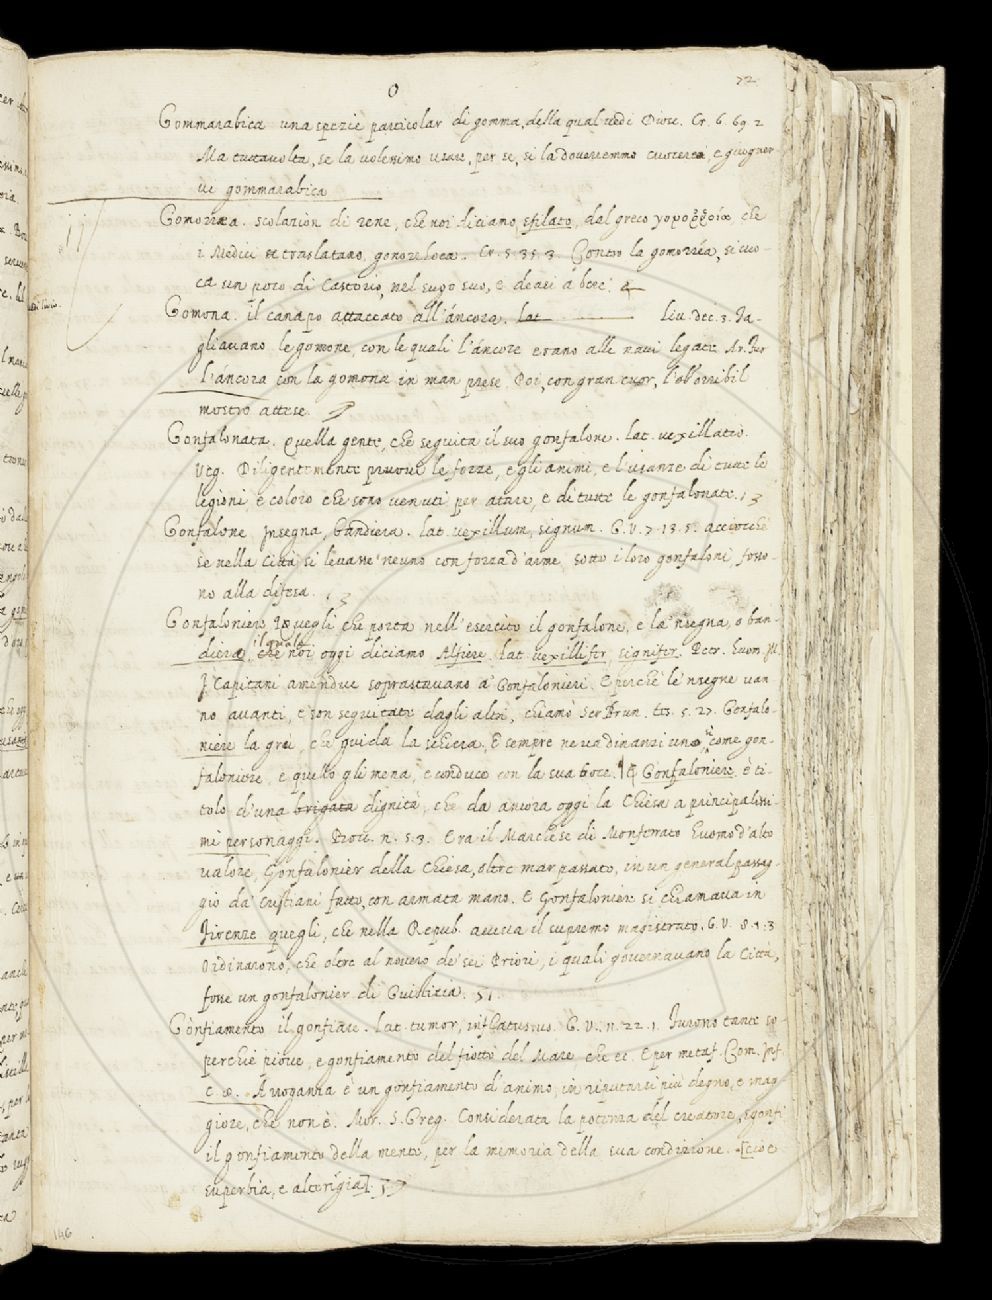 O
72
Gommarabica una spezie particolar di gomma, della qual vedi Diosc. Cr. 6. 69. 2
Ma tuttavolta, se la volessimo usare, per se, si la doveremmo cuocere, e giugner
vi gommarabica
Gomorrea. scolazion di rene, che noi diciamo sfilato, dal greco γομοῤῥοία che
i Medici traslatano, gonorrea. Cr. 5. 35. 3. Contro la gomorréa, si cuo-
ca un poco di Castorio, nel sugo suo, e deasi a bere.
Gomona. il canapo attaccato all'áncora. lat Liv. dec. 3. Ta-
gliavano le gomone, con le quali l'áncore erano alle navi legate Ar. Fur
L'áncora con la gomona in man prese. Poi, con gran cuor, l'orribil
mostro attese.
Gonfalonata. Quella gente, che seguita il suo gonfalone. lat. vexillatio.
Veg. Diligentemente pruovi le forze, e gli animi, e l'usanze di tutte le
legioni e coloro che sono venuti per atare, e di tutte le gonfalonate.
Gonfalone, Insegna, bandiera. lat. vexillum, signum. G. V. 7. 13. 5. acciocchè
se nella Città si levasse neuno con forza d'arme, sotto i loro gonfaloni, fosso-
no alla difesa.
Gonfaloniere quegli che porta nell'esercito il gonfalone, e la 'nsegna, o ban-
il quale
diera, che noi oggi diciamo Alfiere. lat vexillifer, signifer. Petr. huom. ill.
I Capitani amendue soprastavano a' Gonfalonieri. E perchè le 'nsegne van-
no avanti, e son seguitate dagli altri, chiamò Ser Brun. tes. 5. 27. Gonfalo-
niere la gru, che guida la schiera. E sempre ne va dinanzi uno come gon-
faloniere, e quello gli mena, e conduce con la sua boce. E Gonfaloniere è ti-
tolo d'una brigata dignità, che da ancora oggi la Chiesa a principalissi-
mi personaggi. n. 53. Era il Marchese di Monferrato huomo d'alto
valore, Gonfalonier della Chiesa, oltre mar passato, in un general passag-
gio da' Cristiani fatto, con armata mano. E Gonfaloniere si chiamava in
Firenze quegli, che nella Repub. aveva il supremo magistrato. G. V. 8. 1. 3
Ordinarono, che oltre al novero de' sei Priori, i quali governavano la Città,
fosse un gonfalonier di Giustizia.
Gonfiamento il gonfiare. lat. tumor, inflatus. G. V. 11. 22. 1. Furono tante so-
perchie piove, e gonfiamento del fiotto del Mare che ec. E per metaf. Com. Inf.
Arroganza è un gonfiamento d'animo, in riputarsi più degno, e mag-
giore, che non è. Mor. S. Greg. Considerata la potenza del creatore, sgonfi
il gonfiamento della mente, per la memoria della sua condizione. [cioè
superbia, e alterigia].
146